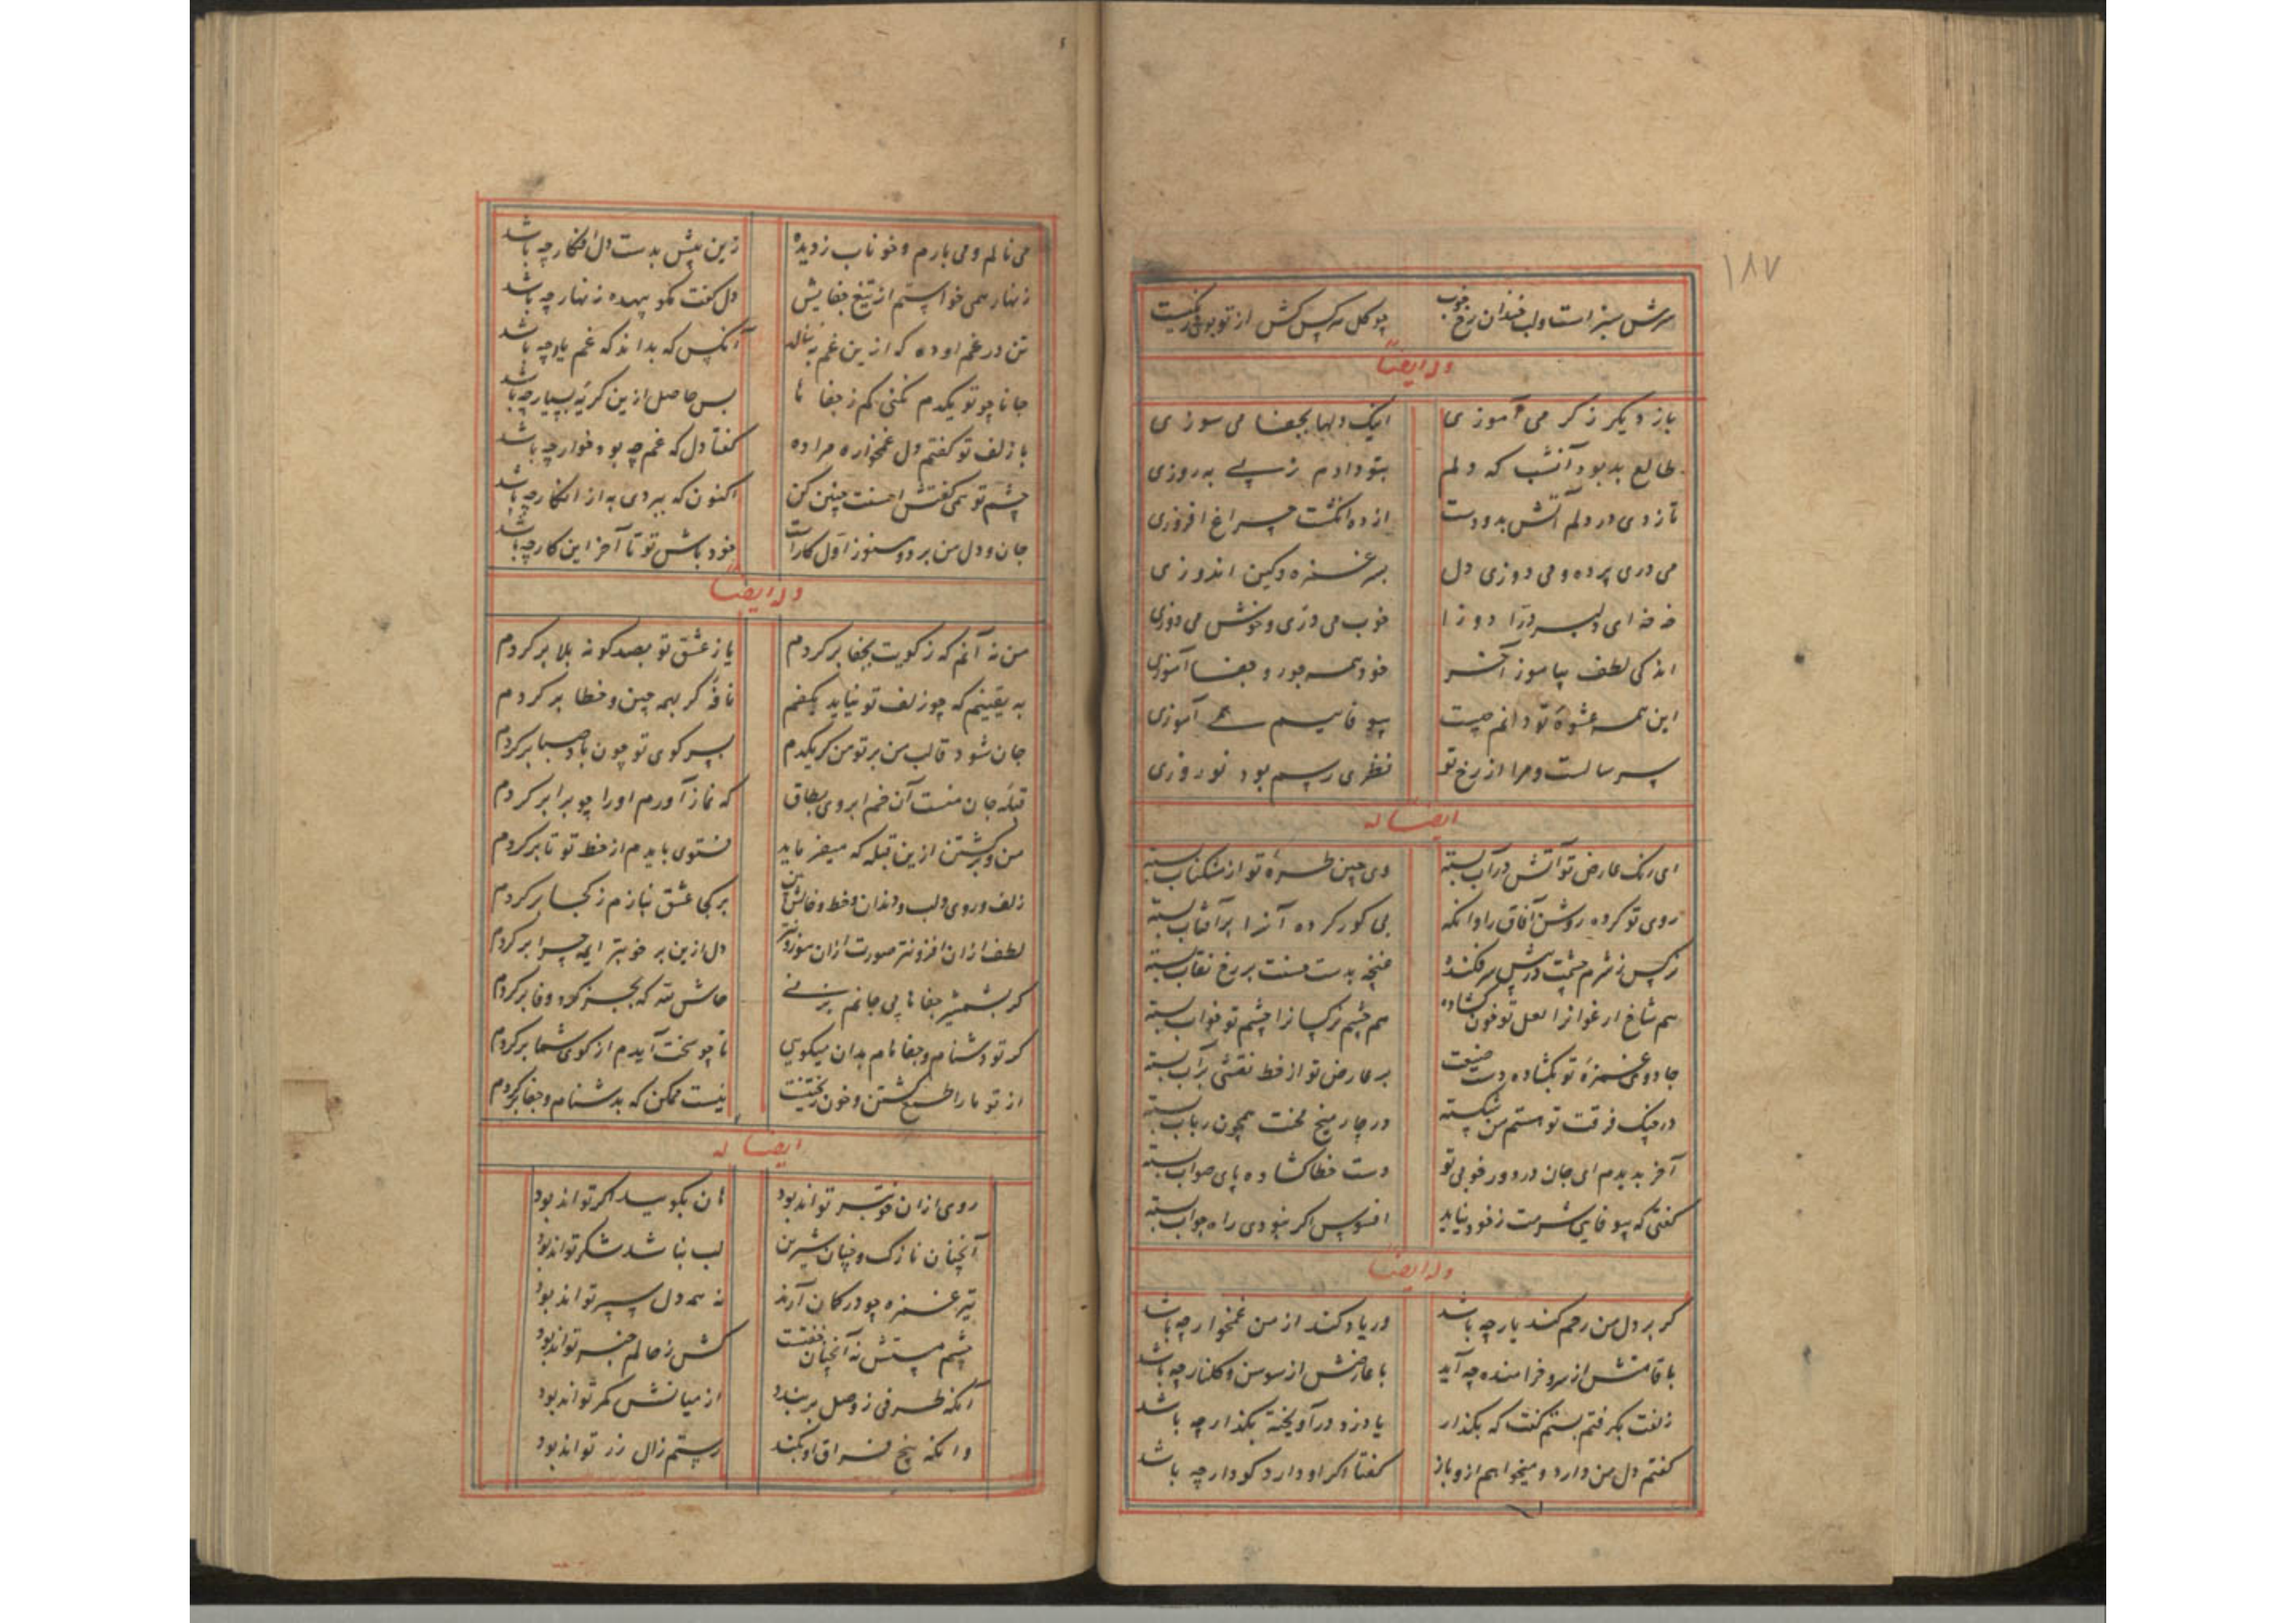 ۱۸۷
سرش سبز است و لب خندان رخ خوب چو گل هر کس کش از تو بوی رنگیست
وله ایضاً
باز دیگر ز کر می آموزی اینک دلها بجفا می سوزی
طالع بد بود آنشب که دلم بتو دادم ز پی به روزی
تا زدی در دلم آتش بدو دست از ده انگشت چراغ افروزی
می دری پرده و می دوزی دل بس غمزه و کین اندوزی
خه خه ای دلبر درّا دوزا خوب می درّی و خوش می دوزی
اندکی لطف بیاموز آخر خود همه جور و جفا آموزی
این همه عشوهٔ تو دانم چیست بیوفاییم همی آموزی
سر سالست و مرا از رخ تو نظری رسم بود نوروزی
ایضا له
ای رنگ عارض تو آتش در آب بسته وی چین طرهٔ تو از مشکناب بسته
روی تو کرده روشن آفاق را وانگه بی کور کرده آنرا بر آفتاب بسته
نرگس ز شرم چشمت در پیش سر فکنده غنچه بدست حسنت بر رخ نقاب بسته
هم شاخ ارغوانرا لعل تو خون گشاده هم چشم نرگسانرا چشم تو خواب بسته
جادوی غمزهٔ تو بگشاده دست صنعت بر عارض تو از خط نقشی بر آب بسته
در چنگ فرقت تو هستم من شکسته در چار میخ محنت همچون رباب بسته
آخر بدیدم ای جان در دور خوبی تو دست خطا گشاده پای صواب بسته
گفتی که بیوفایی شرمت ز خود نیاید افسوس اگر نبودی راه جواب بسته
وله ایضا
گر بر دل من رحم کند یار چه باشد ور یاد کند از من غمخوار چه باشد
با قامتش از سرو خرامنده چه آید با عارضش از سوسن و گلنار چه باشد
زلفت بگرفتم بستم گفت که بگذار یا دزد در آویخته بگذار چه باشد
گفتم دل من دارد و میخواهم ازو باز گفتا اگر او دارد گو دار چه باشد
می نالم و می بارم و خوناب ز دیده زین بیش بدست دل افگار چه باشد
زنهار همی خواستم از تیغ جفایش دل گفت مگو بیهده زنهار چه باشد
تن در غم او ده که ازین غم بننالد آنکس که بداند که غم یار چه باشد
جانا چو تو یکدم نکنی کم ز جفا ها بس حاصل ازین گریهٔ بسیار چه باشد
با زلف تو گفتم دل غمخواره مرا ده گفتا دل که غم چه بود خوار چه باشد
چشم تو همی گفتش احسنت چنین کن اکنون که ببردی به از انکار چه باشد
جان و دل من برد و هنوز اول کارست خود باش تو تا آخر این کار چه باشد
وله ایضاً
من نه آنم که ز کویت بجفا بر گردم یا ز عشق تو بصد گونه بلا بر گردم
به یقینم که چو زلف تو نیاید بکفم نافه گر بهمه چین و خطا بر گردم
جان شود قالب من بر تو من گر یکدم بسر کوی تو چون باد صبا بر گردم
قبلهٔ جان منست آن خم ابروی بطاق که نماز آورم او را چو برابر گردم
من و برگشتن ازین قبله که میفرماید فتوی بایدم از خط تو تا بر گردم
زلف و روی و لب و دندان و خط و خالش بین بر کجا عشق نیازم ز کجا بر گردم
لطف ازان افزونتر صورت ازان موزونتر دل ازین بر خوبتر ایمه چرا بر گردم
گر بشمشیر جفاها پی جانم بزنی حاش لله که بجز گرد وفا بر گردم
گر تو دشنام و جفا نام بدان میگویی تا چو سخت آیدم از کوی شما بر گردم
از تو ما را طمع کشتن و خون ریختنست نیست ممکن که بدشنام و جفا بر گردم
ایضا له
روی ازان خوبتر تواند بود هان بگویید اگر تواند بود
آنچنان نازک و چنان شیرین لب نباشد شکر تواند بود
تیر غمزه چو در کمان آرند نه همه دل سپر تواند بود
چشم مستش نه آنچنان خفتست کش ز حالم خبر تواند بود
آنکه طرفی ز وصل بر بندد از میانش کمر تواند بود
وانکه بیخ فراق او بکند رستم زال زر تواند بود